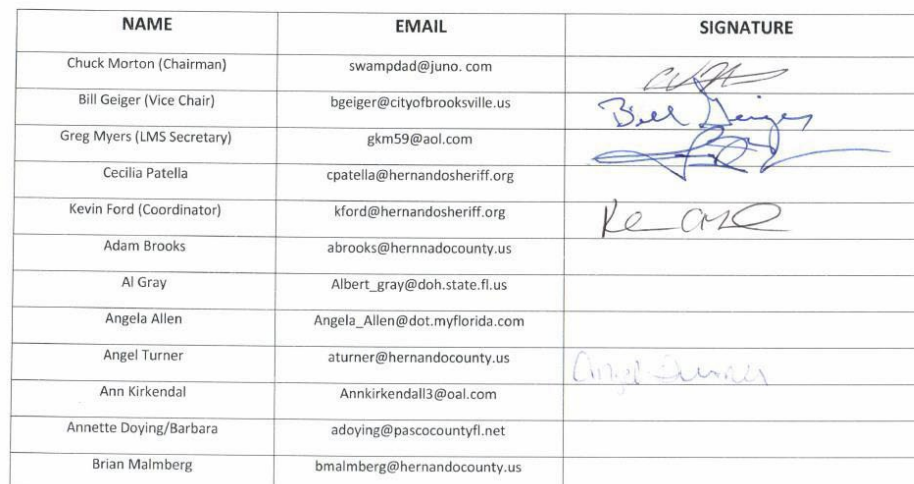 NAME EMAIL SIGNATURE
Chuck Morton (Chairman) swampdad@juno. com
Bill Geiger (Vice Chair) bgeiger@cityofbrooksville.us Bill Geiger
Greg Myers (LMS Secretary) gkm59@aol.com
Cecilia Patella cpatella@hernandosheriff.org
Kevin Ford (Coordinator) kford@hernandosheriff.org
Adam Brooks abrooks@hernnadocounty.us
Al Gray Albert_gray@doh.state.fl.us
Angela Allen Angela_Allen@dot.myflorida.com
Angel Turner aturner@hernandocounty.us Angel Turner
Ann Kirkendal Annkirkendall3@oal.com
Annette Doying/Barbara adoying@pascocountyfl.net
Brian Malmberg bmalmberg@hernandocounty.us